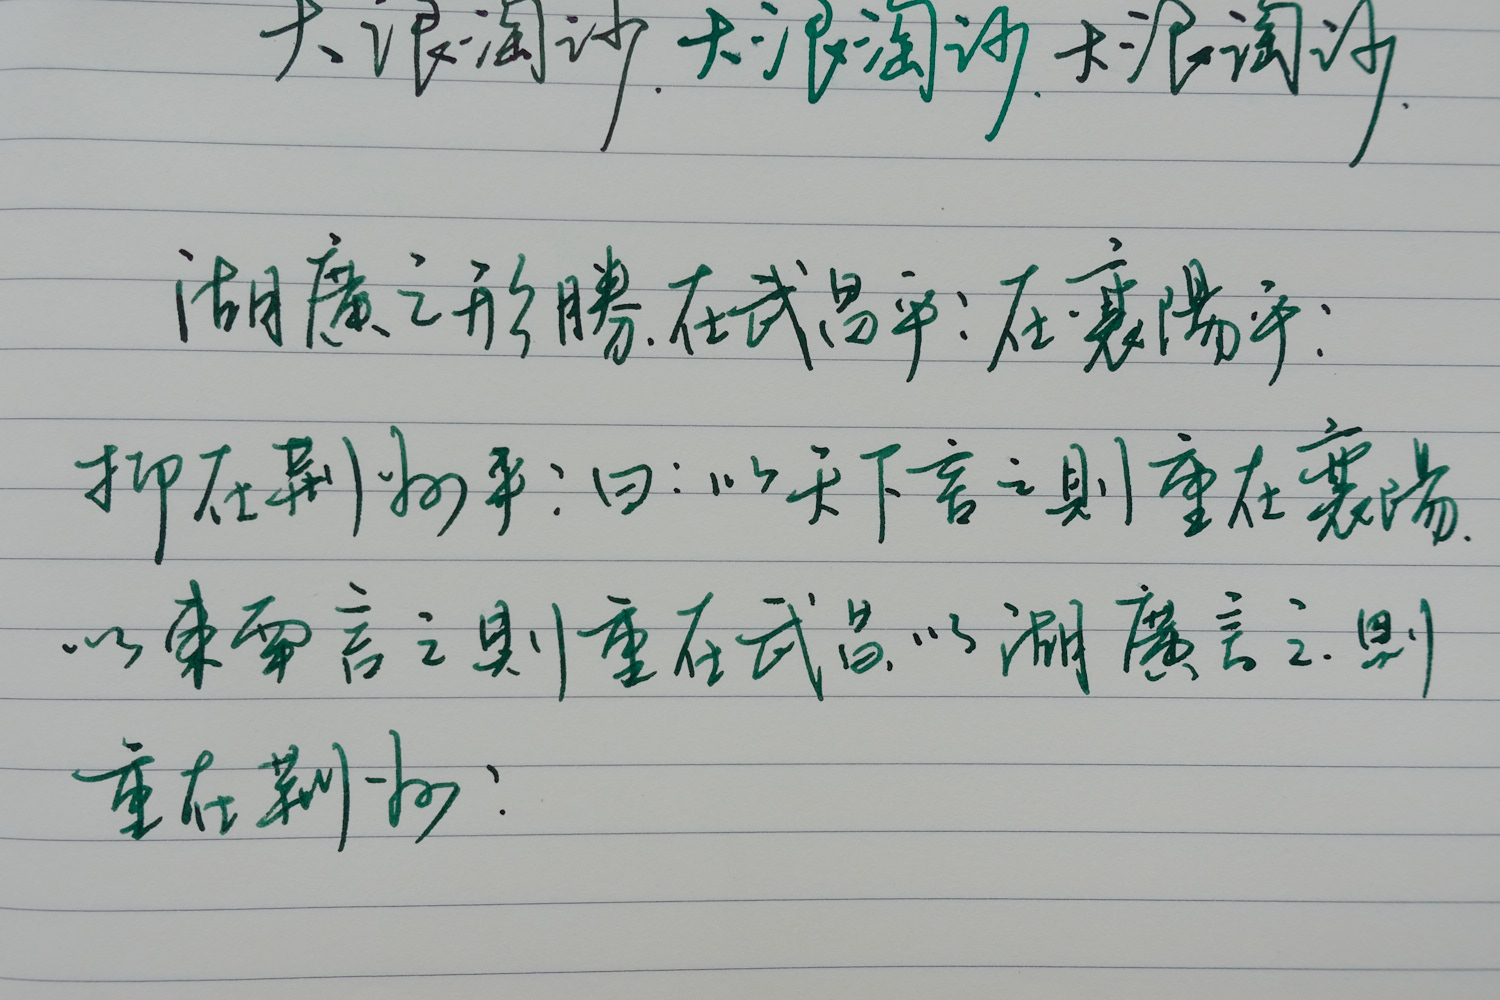 大浪淘沙.大浪淘沙.大浪淘沙.
湖廣之形勝.在武昌乎:在襄陽乎:
抑在荆州乎:曰:以天下言之則重在襄陽.
以東南言之則重在武昌.以湖廣言之.則
重在荆州: